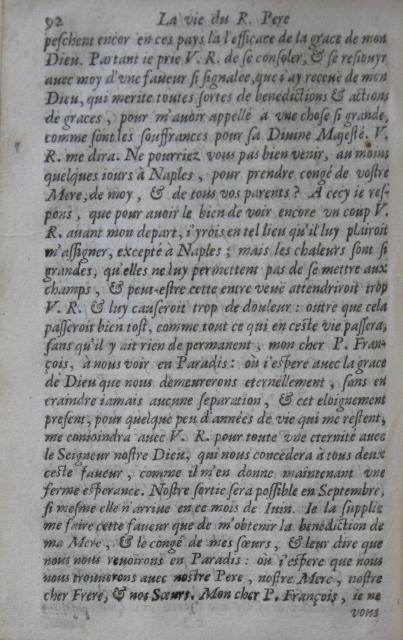 92 La vie du R. Pere
peschent encor en ces pays la l'efficace de la grace de mon
Dieu. Partant ie prie V. R. de se consoler, & se resiouyr
auec moy d'vne faueur si signalee, que i'ay receuë de mon
Dieu, qui merite toutes sortes de benedictions & actions
de graces, pour m'auoir appellé à vne chose si grande,
comme sont les souffrances pour sa Diuine Majesté. V.
R. me dira. Ne pourriez vous pas bien venir, au moins
quelques iours à Naples, pour prendre congé de vostre
Mere, de moy, & de tous vos parents? A cecy ie res-
pons, que pour auoir le bien de voir encore vn coup V.
R. auant mon depart, i'yrois en tel lieu qu'il luy plairoit
m'assigner, excepté à Naples; mais les chaleurs sont si
grandes, qu'elles ne luy permettent pas de se mettre aux
champs, & peut-estre cette entre veuë attendriroit trop
V. R. & luy causeroit trop de douleur: outre que cela
passeroit bien tost, comme tout ce qui en ceste vie passera,
sans qu'il y ait rien de permanent, mon cher P. Fran-
çois, à nous voir en Paradis: où i'espere auec la grace
de Dieu que nous demeurerons eternellement, sans en
craindre iamais aucune separation, & cet eloignement
present, pour quelque peu d'années de vie qui me restent,
me conioindra auec V. R. pour toute vne eternité auec
le Seigneur nostre Dieu, qui nous concedera à tous deux
ceste faueur, comme il m'en donne maintenant vne
ferme esperance. Nostre sortie sera possible en Septembre,
si mesme elle n'arriue en ce mois de Iuin. Ie la supplie
me faire cette faueur que de m'obtenir la benediction de
ma Mere, & le congé de mes sœurs, & leur dire que
nous nous reuoirons en Paradis: où i'espere que nous
nous trouuerons auec nostre Pere, nostre Mere, nostre
cher Frere, & nos Sœurs. Mon cher P. François, ie ne
vous